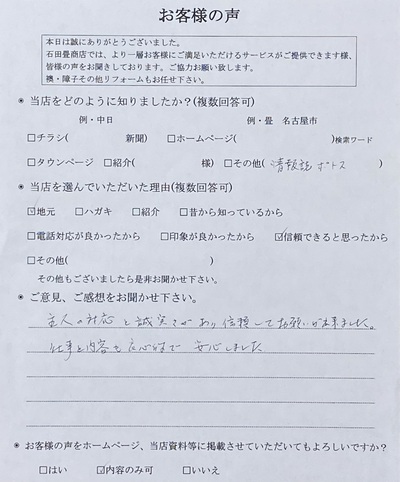 お客様の声
本日は誠にありがとうございました。
石田畳商店では、より一層お客様にご満足いただけるサービスがご提供できます様、
皆様の声をお聞きしております。ご協力お願い致します。
襖・障子その他リフォームもお任せ下さい。
◉ 当店をどのように知りましたか？(複数回答可)
例・中日 例・畳 名古屋市
□チラシ( 新聞) □ホームページ( )検索ワード
□タウンページ □紹介( 様) □その他( 情報誌 ポトス )
◉ 当店を選んでいただいた理由(複数回答可)
☑地元 □ハガキ □紹介 □昔から知っているから
□電話対応が良かったから □印象が良かったから ☑信頼できると思ったから
□その他( )
その他もございましたら是非お聞かせ下さい。
◉ ご意見、ご感想をお聞かせ下さい。
主人の対応と誠実さがあり信頼してお願いが出来ました。
仕事と内容も 安心しました
◉ お客様の声をホームページ、当店資料等に掲載させていただいてもよろしいですか？
□はい ☑内容のみ可 □いいえ